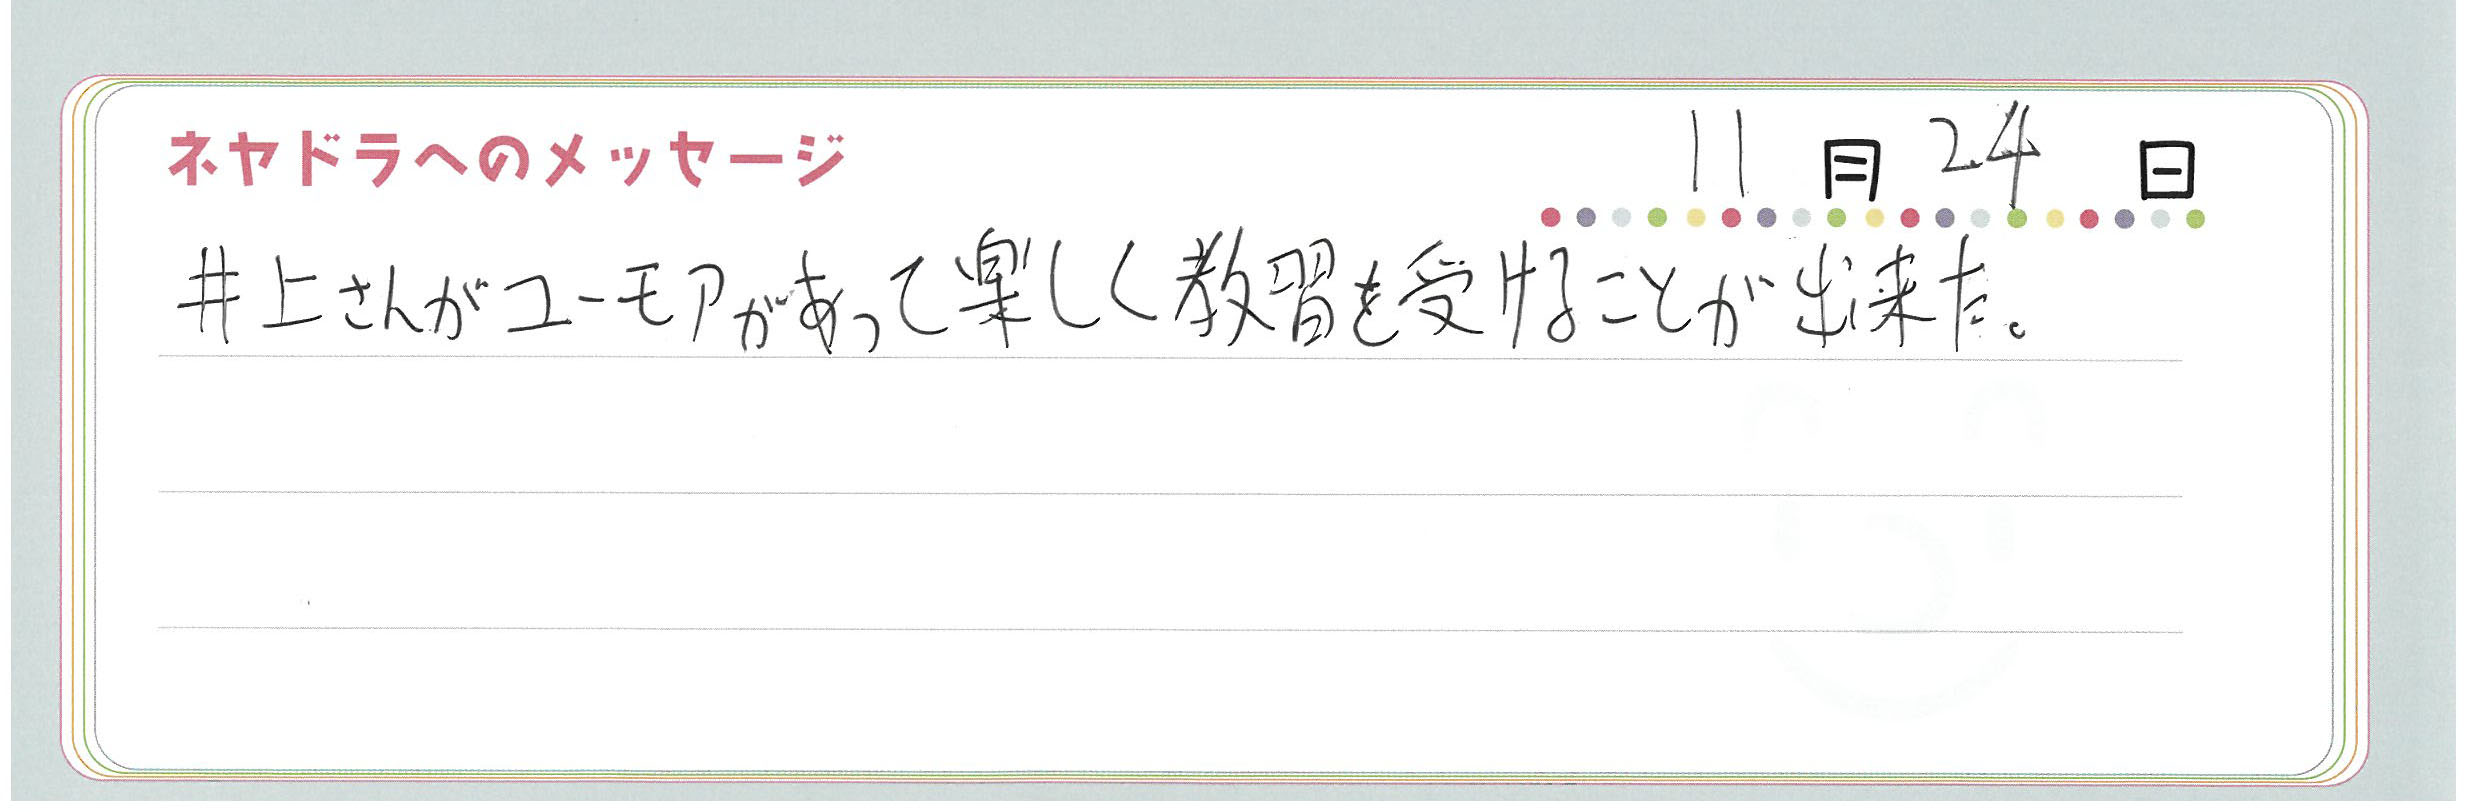 ネヤドラへのメッセージ
11月24日
井上さんがユーモアがあって楽しく教習を受けることが出来た。